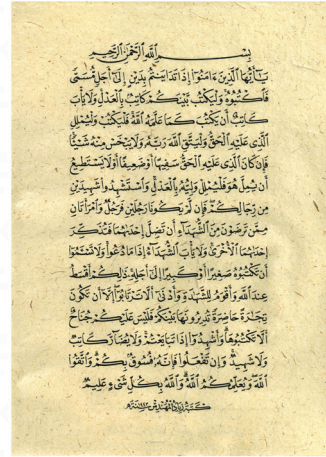 بِسْمِ اللَّهِ الرَّحْمَٰنِ الرَّحِيمِ
يَا أَيُّهَا الَّذِينَ ءَامَنُوٓا۟ إِذَا تَدَايَنتُم بِدَيْنٍ إِلَىٰٓ أَجَلٍ مُّسَمًّى
فَٱكْتُبُوهُ وَلْيَكْتُب بَّيْنَكُمْ كَاتِبٌۢ بِٱلْعَدْلِ وَلَا يَأْبَ
كَاتِبٌ أَن يَكْتُبَ كَمَا عَلَّمَهُ ٱللَّهُ فَلْيَكْتُبْ وَلْيُمْلِلِ
ٱلَّذِى عَلَيْهِ ٱلْحَقُّ وَلْيَتَّقِ ٱللَّهَ رَبَّهُۥ وَلَا يَبْخَسْ مِنْهُ شَيْـًٔا
فَإِن كَانَ ٱلَّذِى عَلَيْهِ ٱلْحَقُّ سَفِيهًا أَوْ ضَعِيفًا أَوْ لَا يَسْتَطِيعُ
أَن يُمِلَّ هُوَ فَلْيُمْلِلْ وَلِيُّهُۥ بِٱلْعَدْلِ وَٱسْتَشْهِدُوا۟ شَهِيدَيْنِ
مِن رِّجَالِكُمْ فَإِن لَّمْ يَكُونَا رَجُلَيْنِ فَرَجُلٌ وَٱمْرَأَتَانِ
مِمَّن تَرْضَوْنَ مِنَ ٱلشُّهَدَآءِ أَن تَضِلَّ إِحْدَىٰهُمَا فَتُذَكِّرَ
إِحْدَىٰهُمَا ٱلْأُخْرَىٰ وَلَا يَأْبَ ٱلشُّهَدَآءُ إِذَا مَا دُعُوا۟ وَلَا تَسْـَٔمُوٓا۟
أَن تَكْتُبُوهُ صَغِيرًا أَوْ كَبِيرًا إِلَىٰٓ أَجَلِهِۦ ذَٰلِكُمْ أَقْسَطُ
عِندَ ٱللَّهِ وَأَقْوَمُ لِلشَّهَٰدَةِ وَأَدْنَىٰٓ أَلَّا تَرْتَابُوٓا۟ إِلَّآ أَن تَكُونَ
تِجَٰرَةً حَاضِرَةً تُدِيرُونَهَا بَيْنَكُمْ فَلَيْسَ عَلَيْكُمْ جُنَاحٌ
أَلَّا تَكْتُبُوهَا وَأَشْهِدُوٓا۟ إِذَا تَبَايَعْتُمْ وَلَا يُضَآرَّ كَاتِبٌ
وَلَا شَهِيدٌ وَإِن تَفْعَلُوا۟ فَإِنَّهُۥ فُسُوقٌۢ بِكُمْ وَٱتَّقُوا۟
ٱللَّهَ وَيُعَلِّمُكُمُ ٱللَّهُ وَٱللَّهُ بِكُلِّ شَىْءٍ عَلِيمٌ